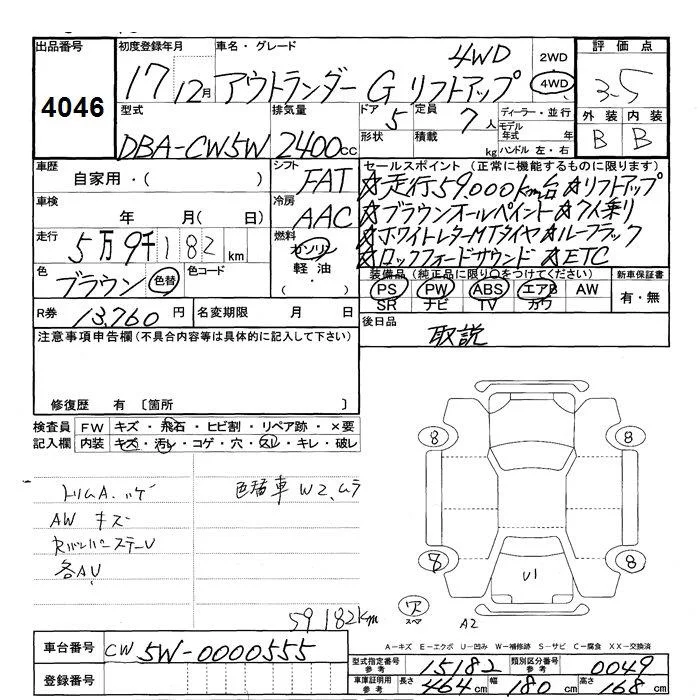 出品番号 4046
初度登録年月 車名・グレード 評価点
17 12月 アウトランダー G リフトアップ 4WD 2WD 4WD 3-5
型式 排気量 ドア 定員 ディーラー・並行 外装 内装
DBA-CW5W 2400cc 5 7人 モデル年式 年 B B
形状 積載 kg ハンドル 左・右
車歴 自家用・( ) シフト FAT
セールスポイント (正常に機能するものに限ります)
☆走行59000km台☆リフトアップ
車検 年 月( 日) 冷房 AAC
☆ブラウンオールペイント☆7人乗り
☆ホワイトレターMTタイヤ☆ルーフラック
走行 5万9千182km 燃料 ガソリン 軽油・
☆ロックフォードサウンド ☆ETC
色 ブラウン 色替 色コード ・( )
装備品 (純正品に限り○をつけてください) 新車保証書
PS PW ABS エアB AW 有・無
SR ナビ TV カワ
R券 13,760円 名変期限 月 日
後日品 取説
注意事項申告欄 (不具合内容等は具体的に記入して下さい)
修復歴 有 〔箇所 〕
検査員 FW キズ・飛石・ヒビ割・リペア跡・×要
記入欄 内装 キズ・汚レ・コゲ・穴・スレ・キレ・破レ
8 8
トリムA.ハゲ 色替車 W2、ムラ
AW キズ
各AU
8 8
U1
59182km
A2
A-キズ E-エクボ U-凹み W-補修跡 S-サビ C-腐食 XX-交換済
車台番号 CW5W-0000555
型式指定番号 参考 15182 類別区分番号 参考 0049
登録番号
車庫証明用 参考 長さ 464cm 幅 180cm 高さ 168cm